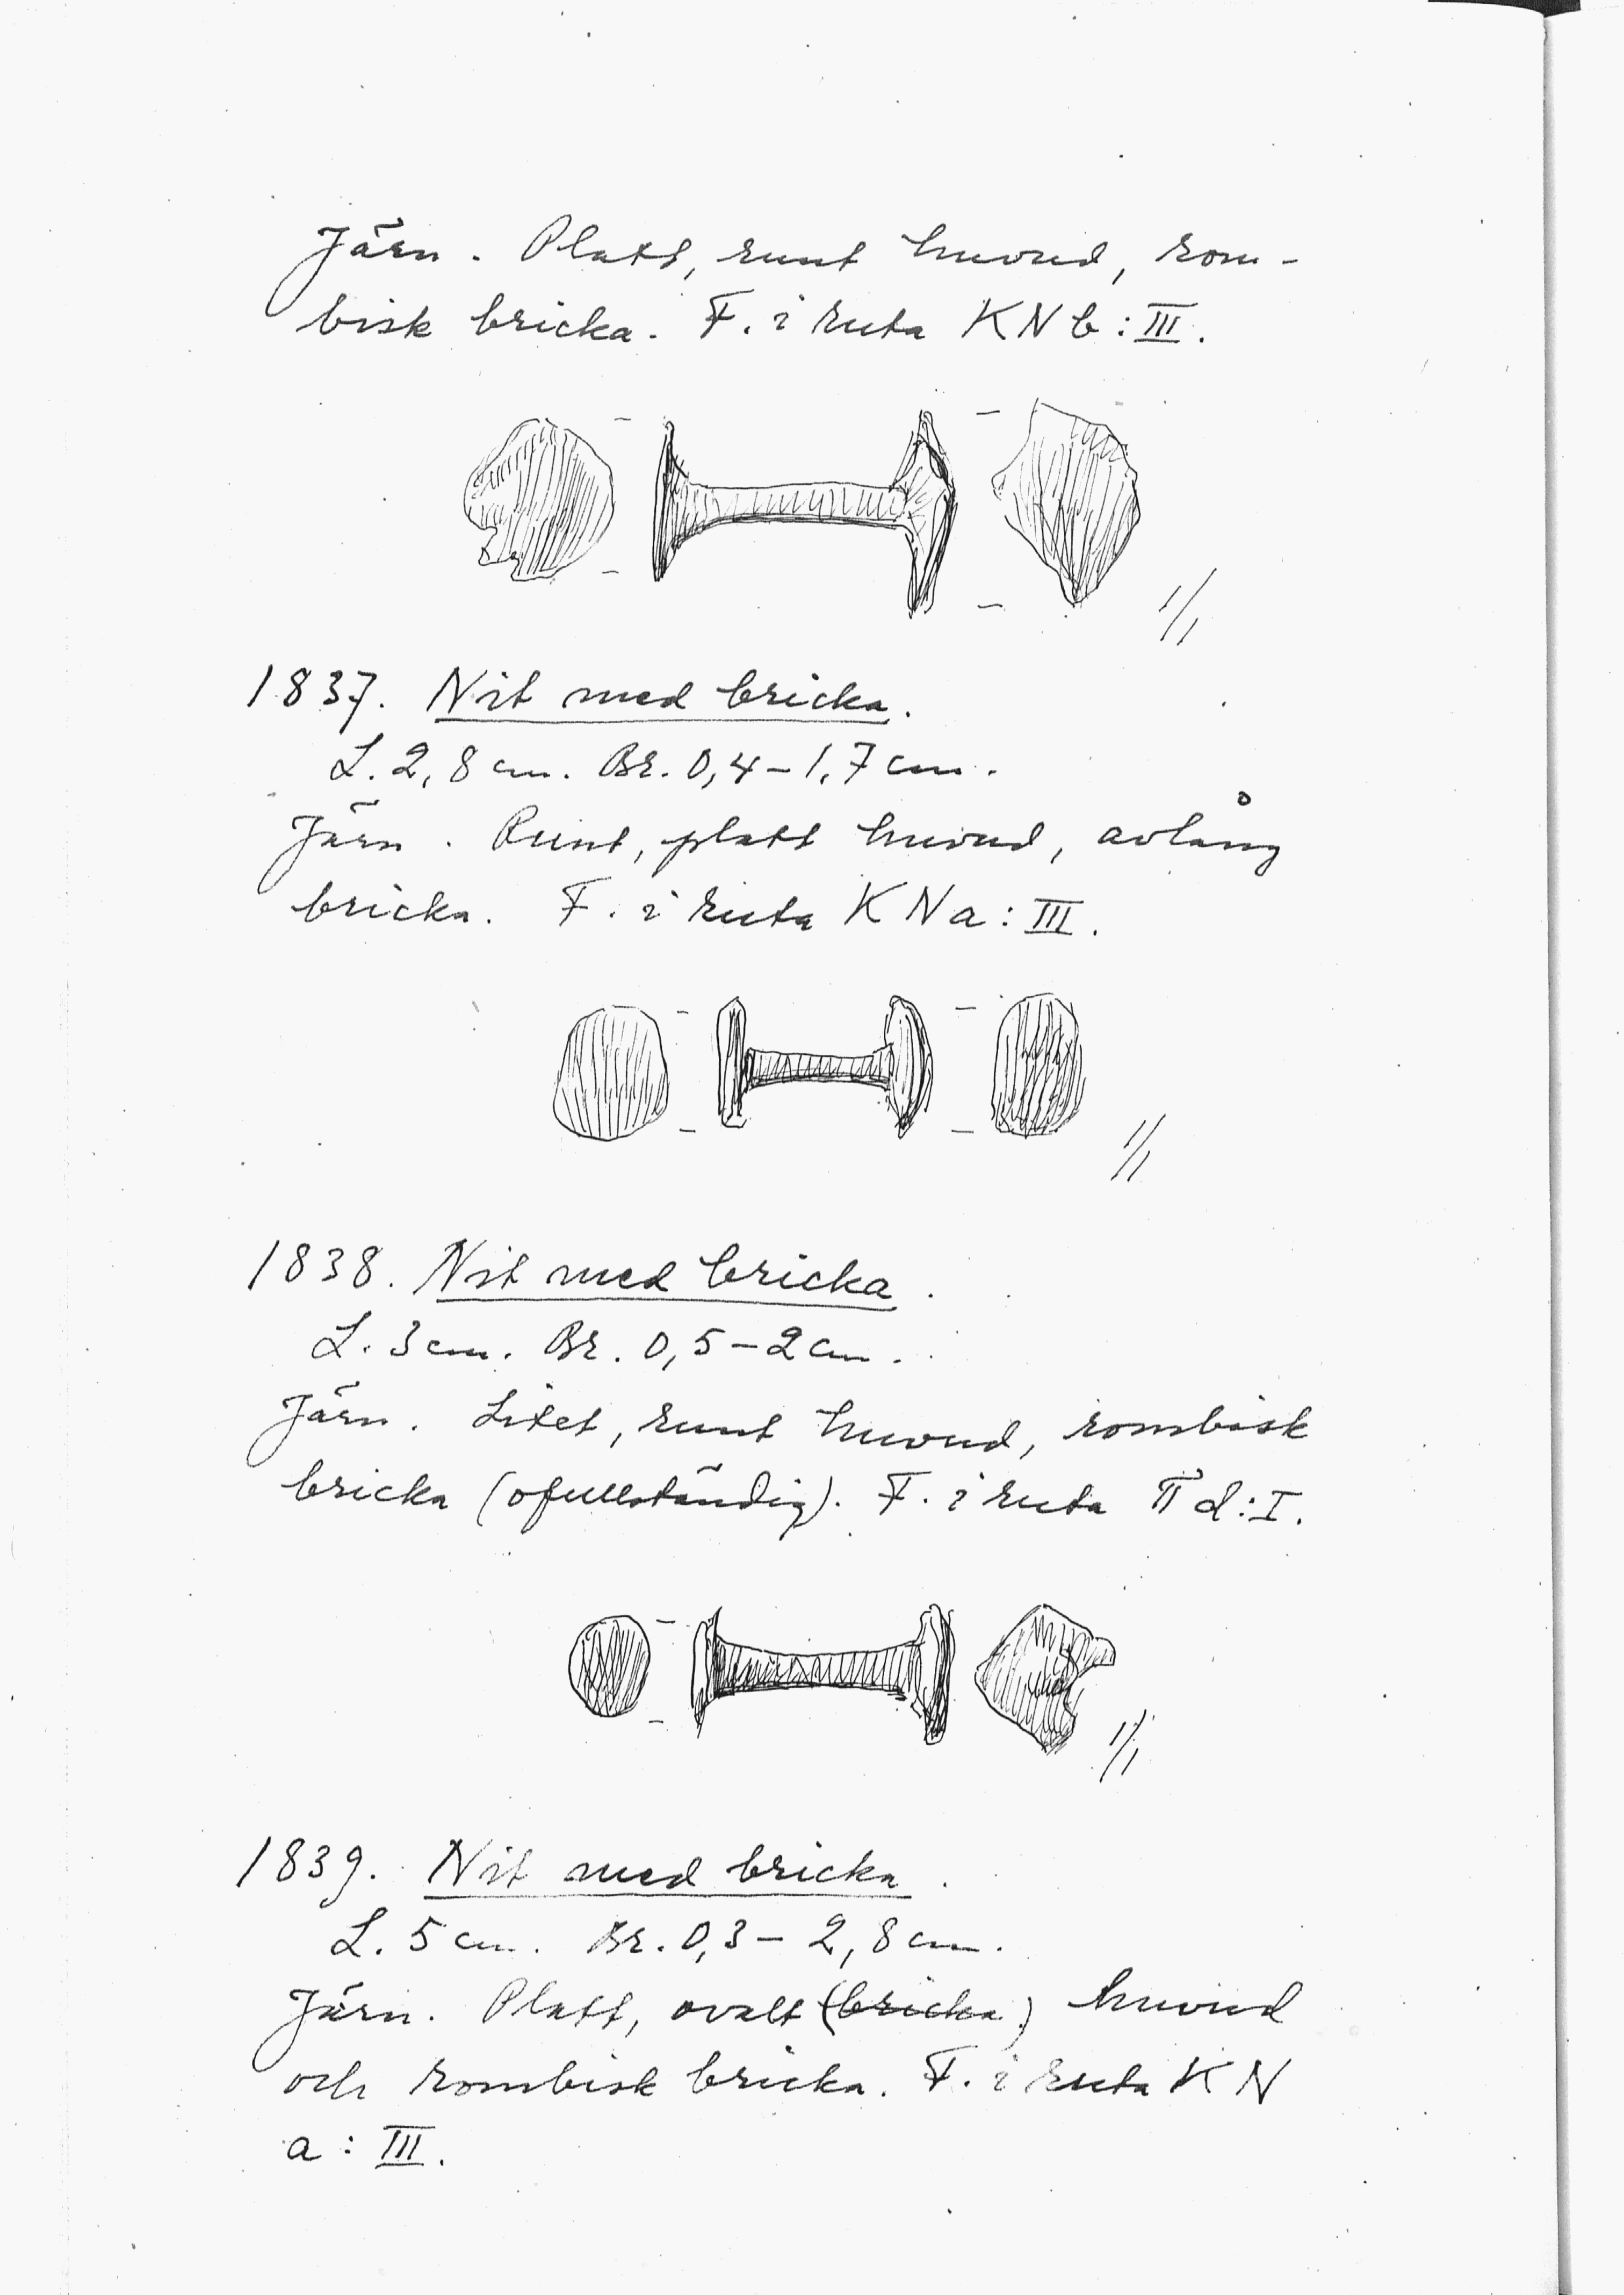 Järn. Platt, runt huvud, rom-
bisk bricka. F. i ruta KN b: III.
1/1
1837. Nit med bricka.
L. 2,8 cm. Br. 0,4–1,7 cm.
Järn. Runt, platt huvud, avlång
bricka. F. i ruta KN a: III.
1/1
1838. Nit med bricka.
L. 3 cm. Br. 0,5–2 cm.
Järn. Litet, runt huvud, rombisk
bricka (ofullständig). F. i ruta Π d: I.
1/1
1839. Nit med bricka.
L. 5 cm. Br. 0,3–2,8 cm.
Järn. Platt, ovalt (bricka) huvud
och rombisk bricka. F. i ruta KN
a: III.